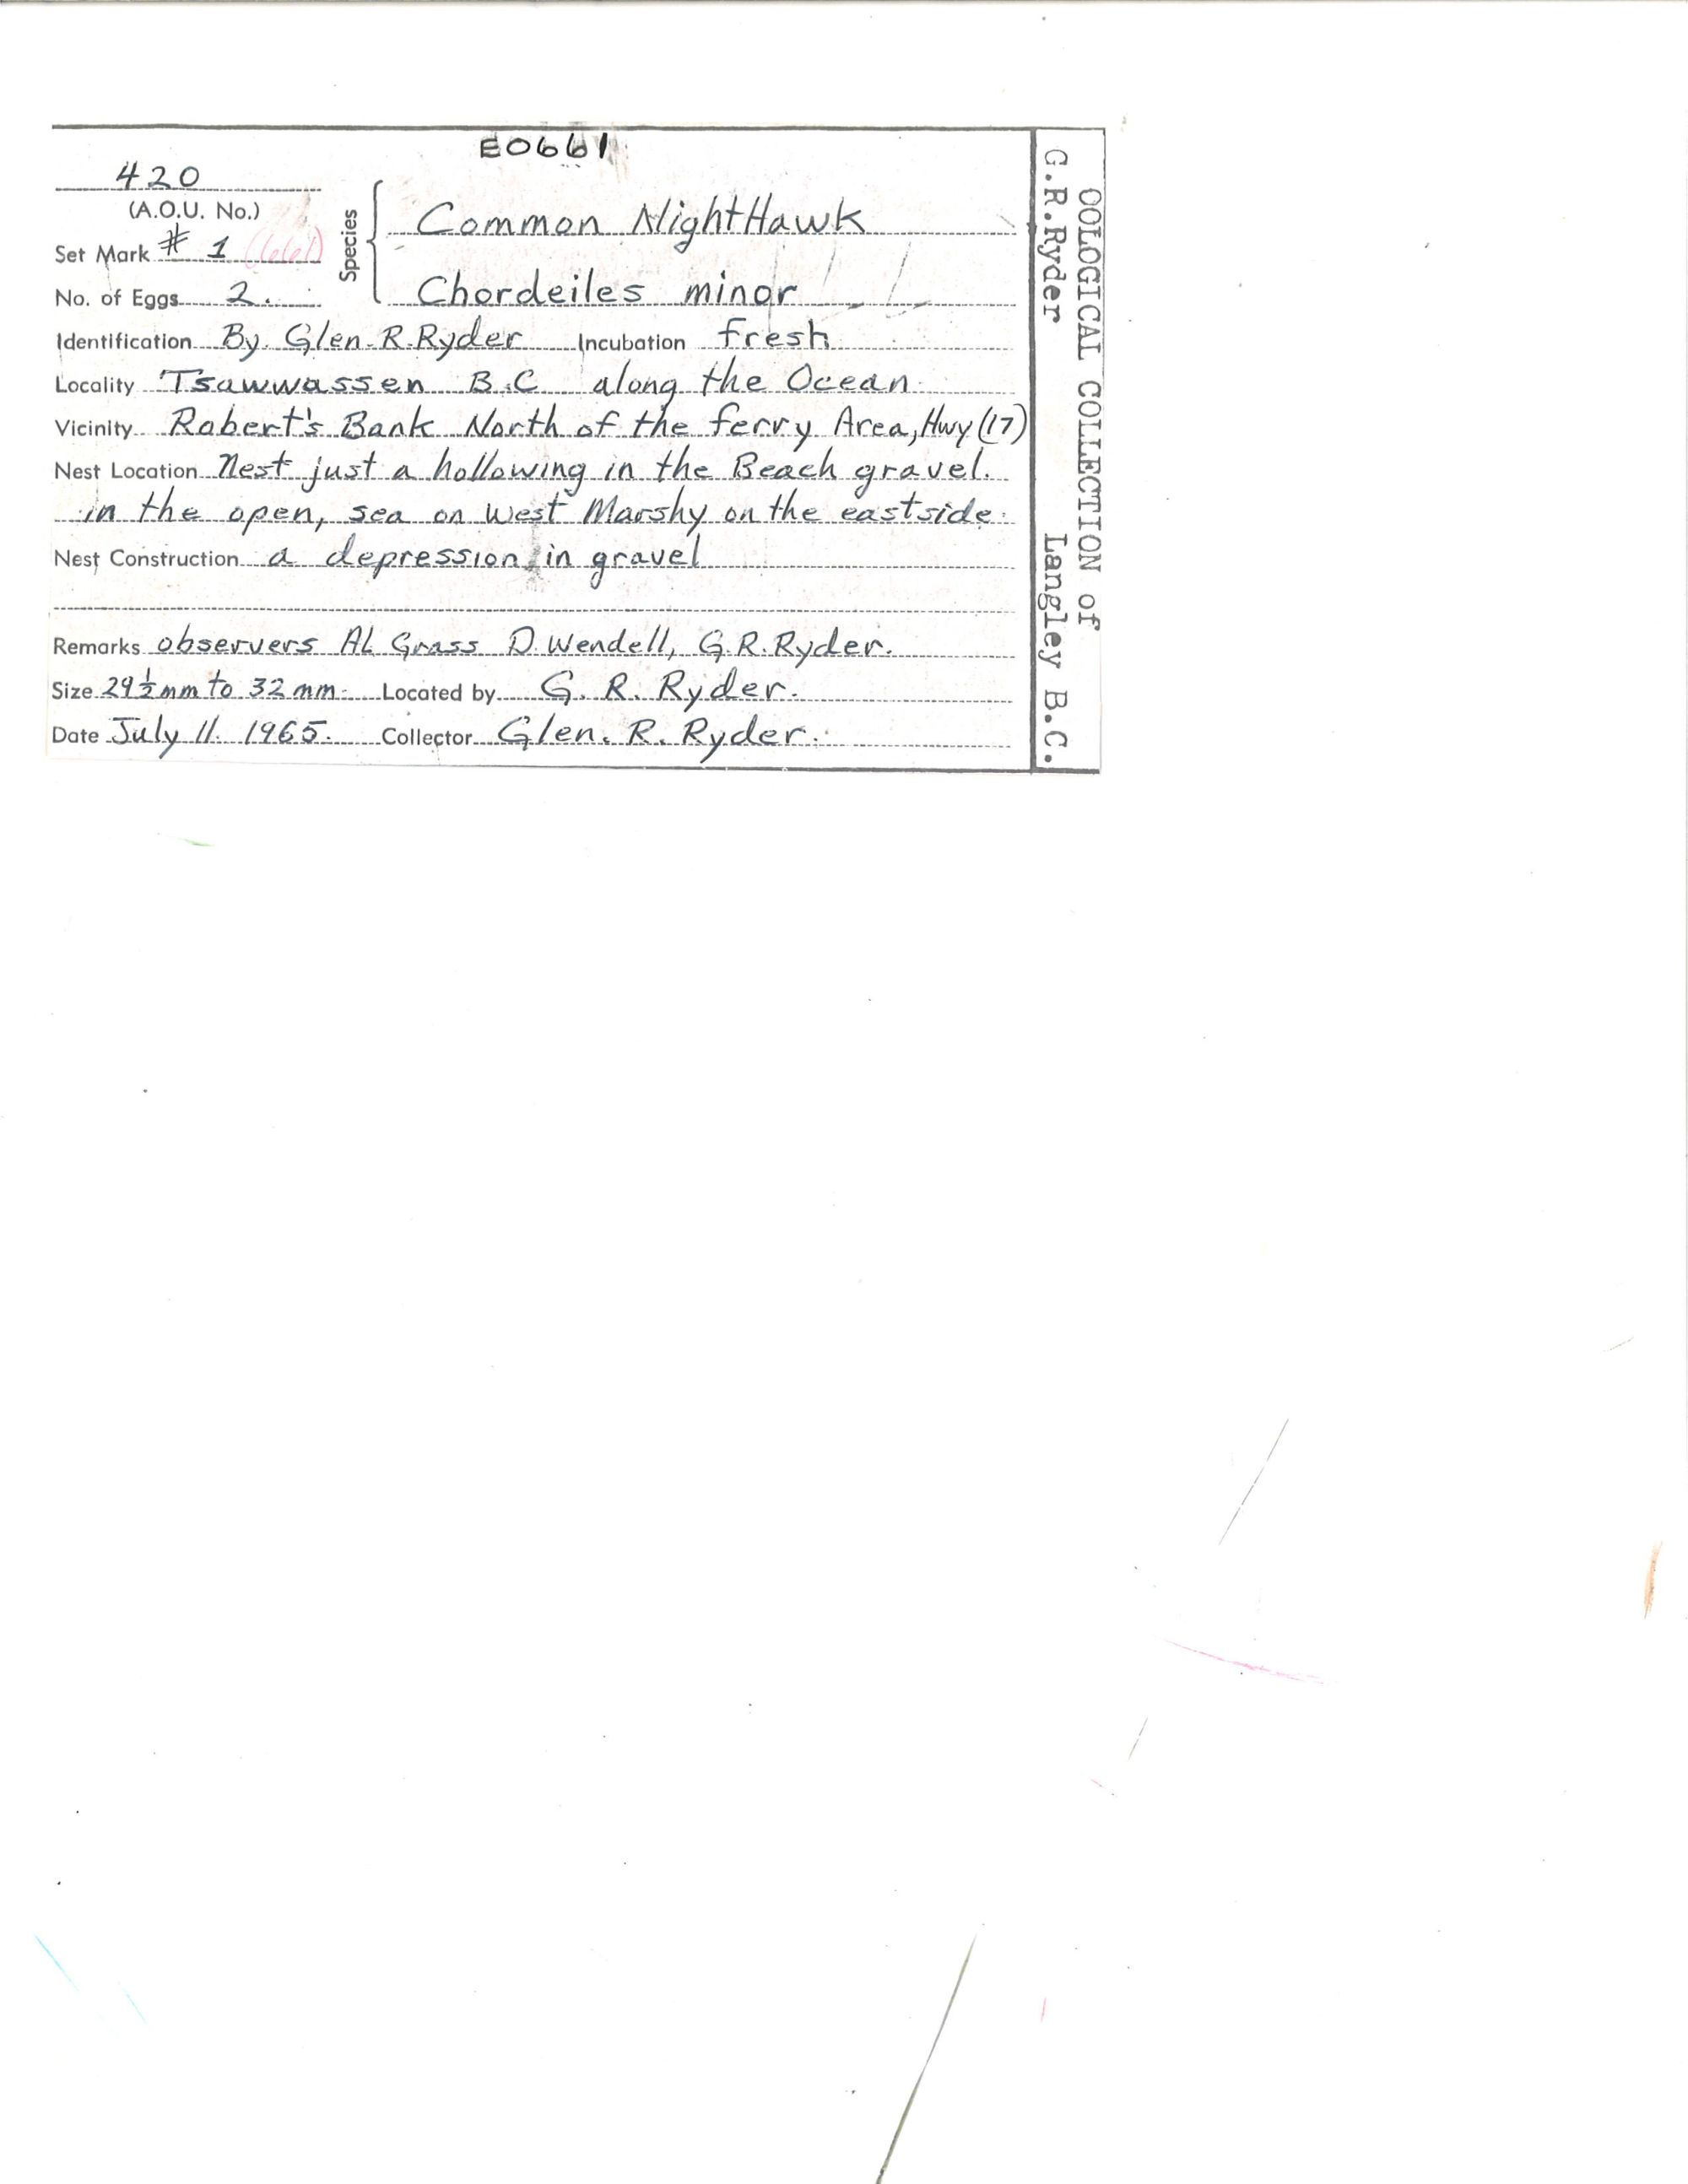 E0661
420
(A.O.U. No.)
Set Mark # 1 (661)
No. of Eggs 2.
Species
Common NightHawk
Chordeiles minor
Identification By. Glen. R. Ryder Incubation fresh
Locality Tsawwassen B.C along the Ocean.
Vicinity Robert's Bank North of the ferry Area, Hwy (17)
Nest Location Nest just a hollowing in the Beach gravel.
in the open, sea on west Marshy on the eastside.
Nest Construction a depression in gravel
Remarks observers AL Grass D. Wendell, G.R. Ryder.
Size 29½mm to 32 mm. Located by G. R. Ryder.
Date July 11. 1965. Collector Glen. R. Ryder.
OOLOGICAL COLLECTION of
G.R.Ryder Langley B.C.